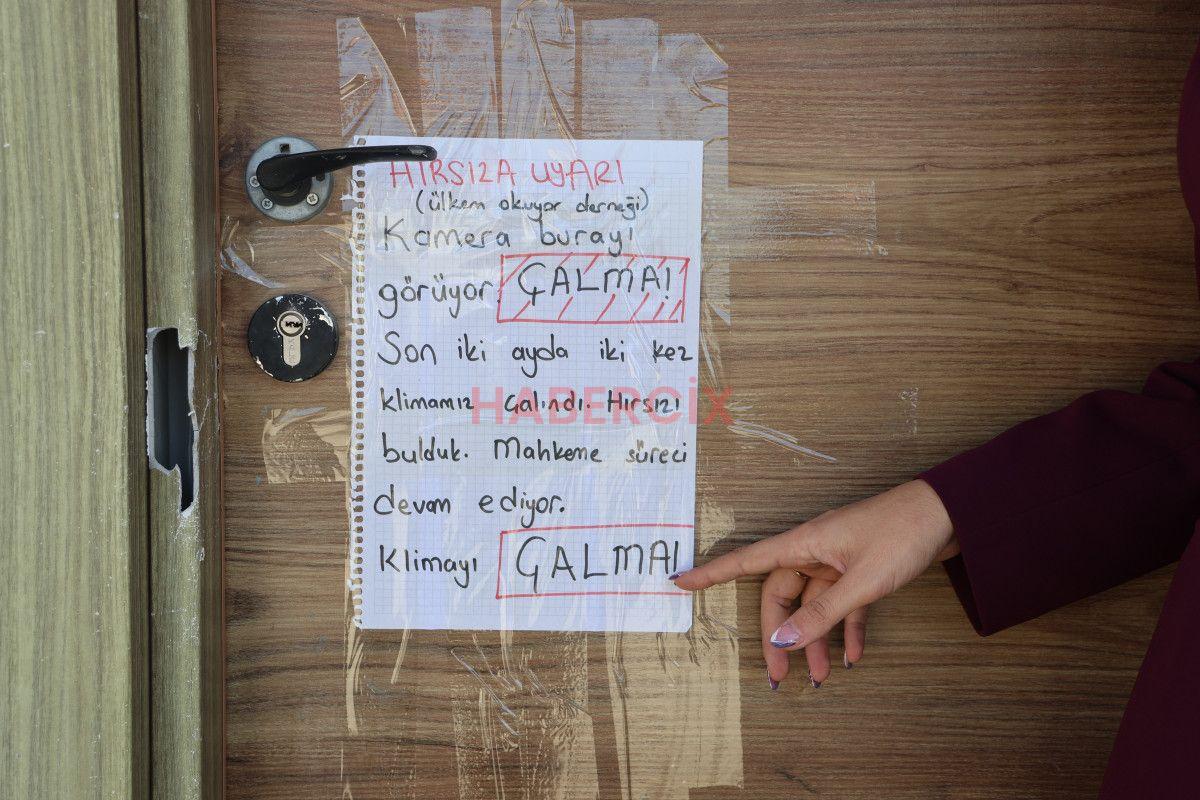 HIRSIZA UYARI
(ülkem okuyor derneği)
Kamera burayı
görüyor. ÇALMA!
Son iki ayda iki kez
klimamız çalındı. Hırsızı
bulduk. Mahkeme süreci
devam ediyor.
Klimayı ÇALMA!
HABERCiX